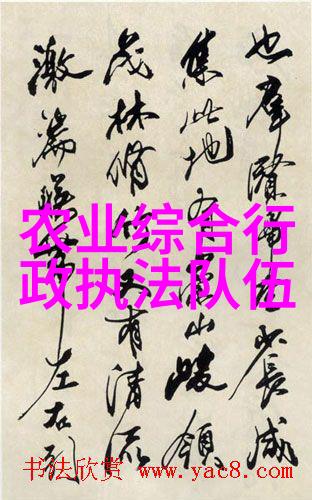 也羣賢畢至少長咸
集此地有崇山峻領
茂林脩竹又有清流
激湍暎帶左右引
农业综合行
政执法队伍
书法欣赏 www.yac8.com